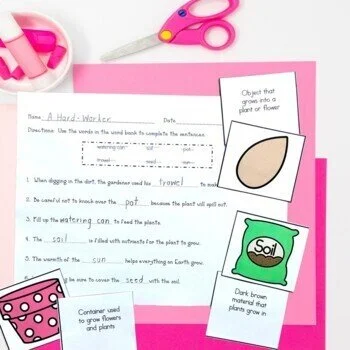 Name A Hard-Worker Date
Directions: Use the words in the word bank to complete the sentences.
watering can soil pot
trowel seed sun
1. When digging in the dirt, the gardener used his trowel to make
2. Be careful not to knock over the pot because the plant will spill out.
3. Fill up the watering can to feed the plants.
4. The soil is filled with nutrients for the plant to grow.
5. The warmth of the sun helps everything on Earth grow.
be sure to cover the seed with the soil.
Object that
grows into a
plant or flower
Soil
Dark brown
material that
plants grow in
Container used
to grow flowers
and plants